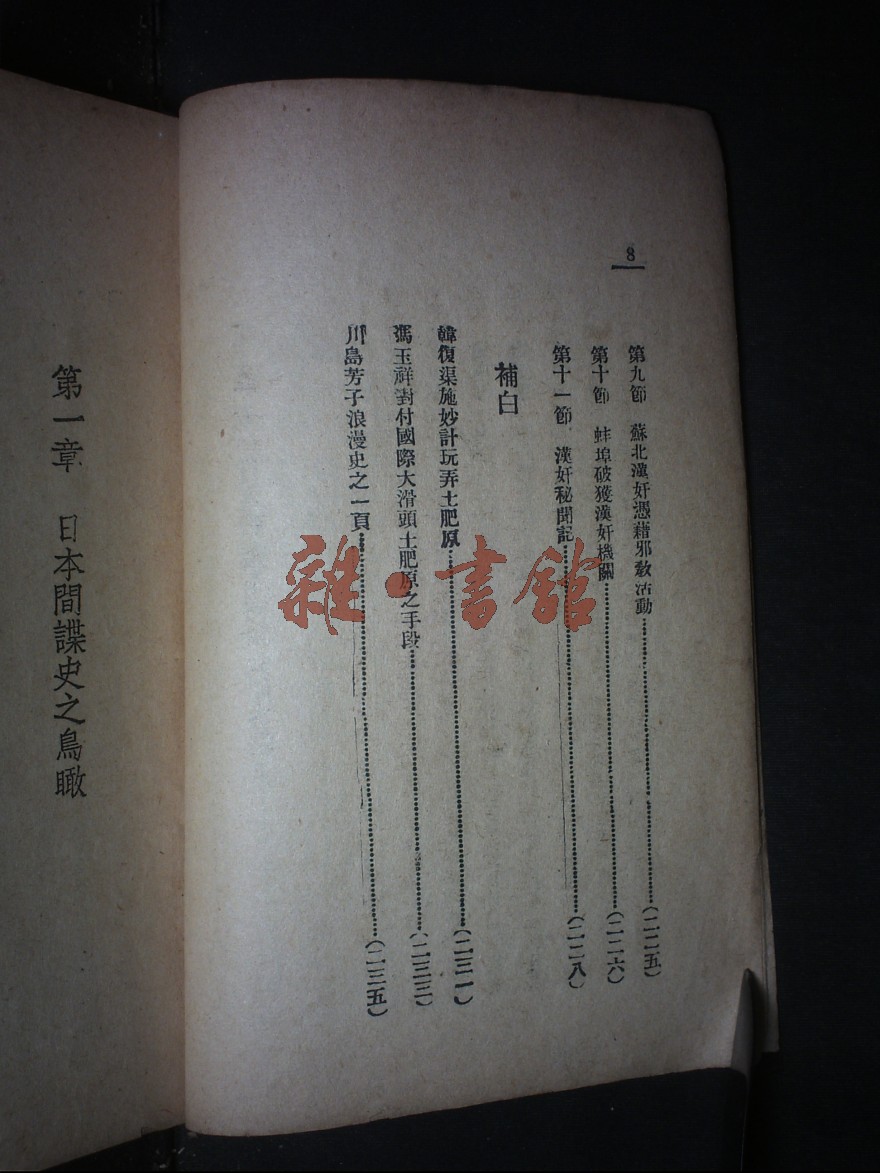 8
第九節　蘇北漢奸憑藉邪教活動……(二二五)
第十節　蚌埠破獲漢奸機關……(二二六)
第十一節　漢奸秘聞記……(二二八)
補白
韓復渠施妙計玩弄土肥原……(二三一)
馮玉祥對付國際大滑頭土肥原之手段……(二三三)
川島芳子浪漫史之一頁……(二三五)
第一章　日本間諜史之鳥瞰
雜·書館